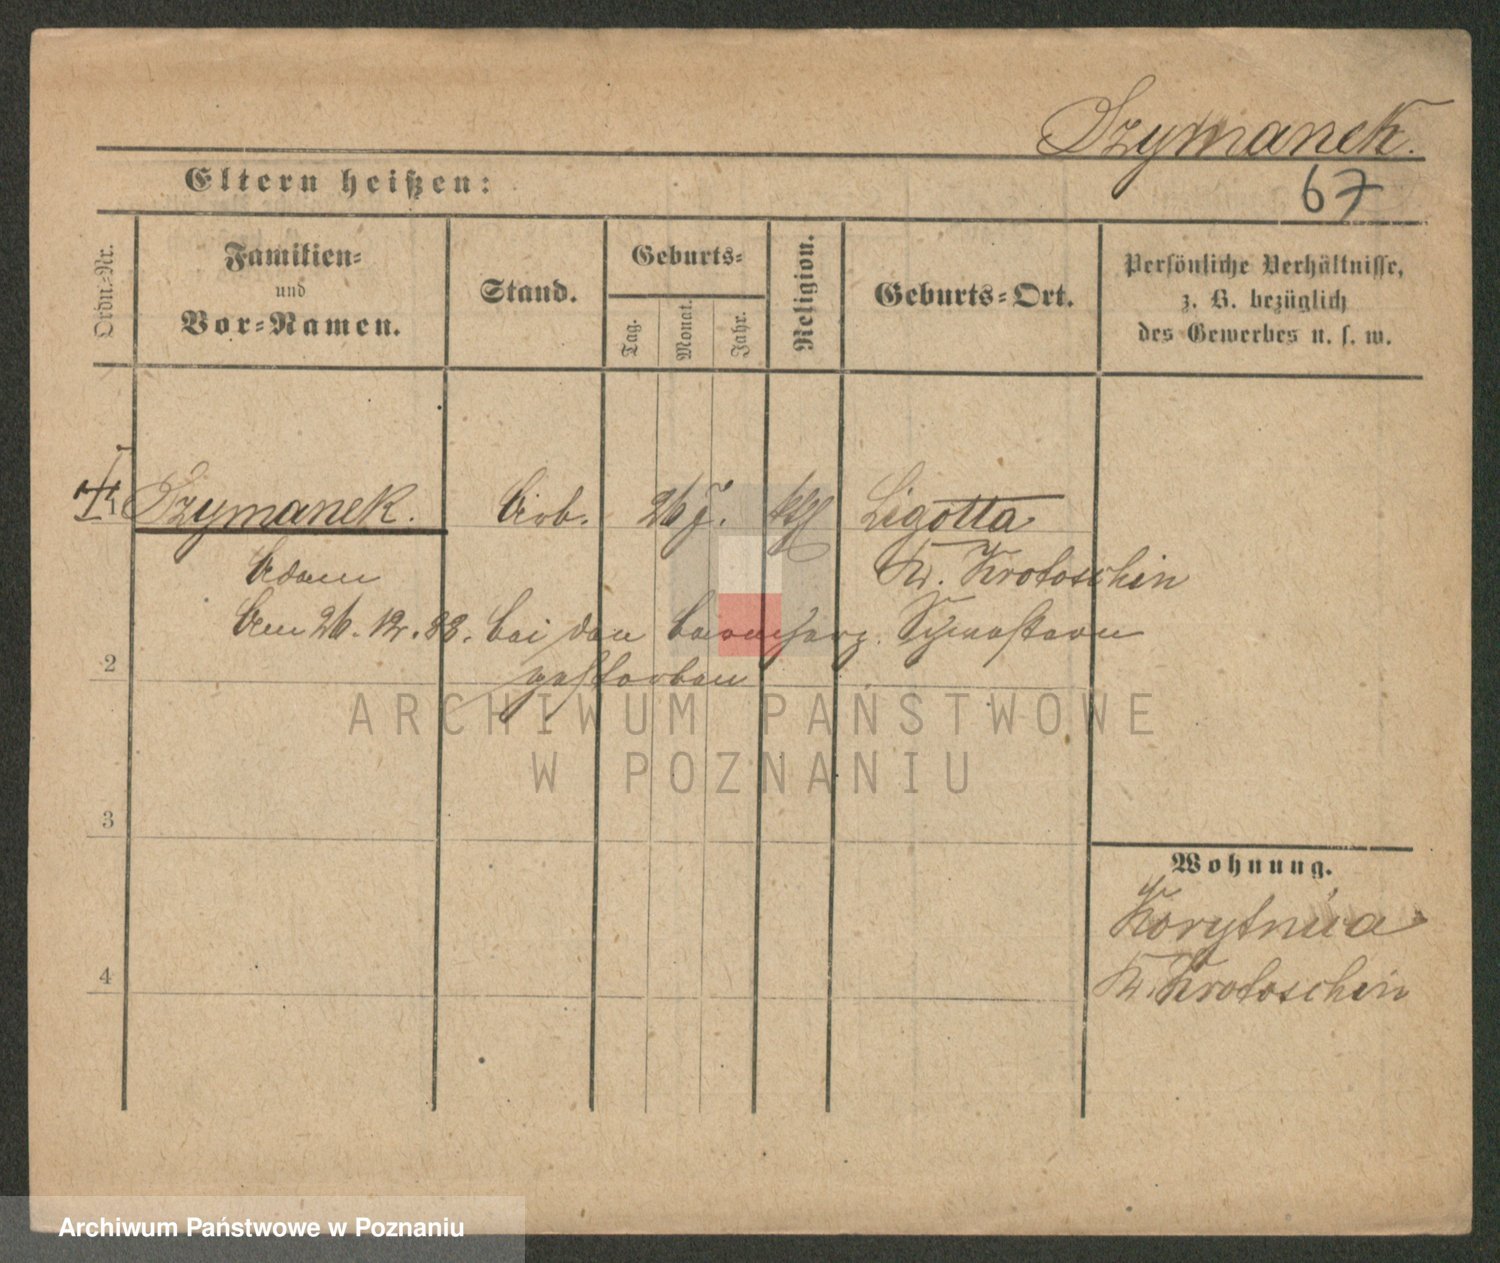 Szymanek.
Eltern heißen:
67
Ordn.-Nr.
Familien-
und
Vor-Namen.
Stand.
Geburts-
Tag.
Monat.
Jahr.
Religion.
Geburts-Ort.
Persönliche Verhältnisse,
z. B. bezüglich
des Gewerbes u. s. w.
1 Szymanek. Arb. 26 J. kth Ligotta
Adam Kr. Krotoschin
Am 26.12.88. bei den barmherz. Schwestern
gestorben
2
3
4
Wohnung.
Korytnica
Kr. Krotoschin
ARCHIWUM PAŃSTWOWE
W POZNANIU
Archiwum Państwowe w Poznaniu